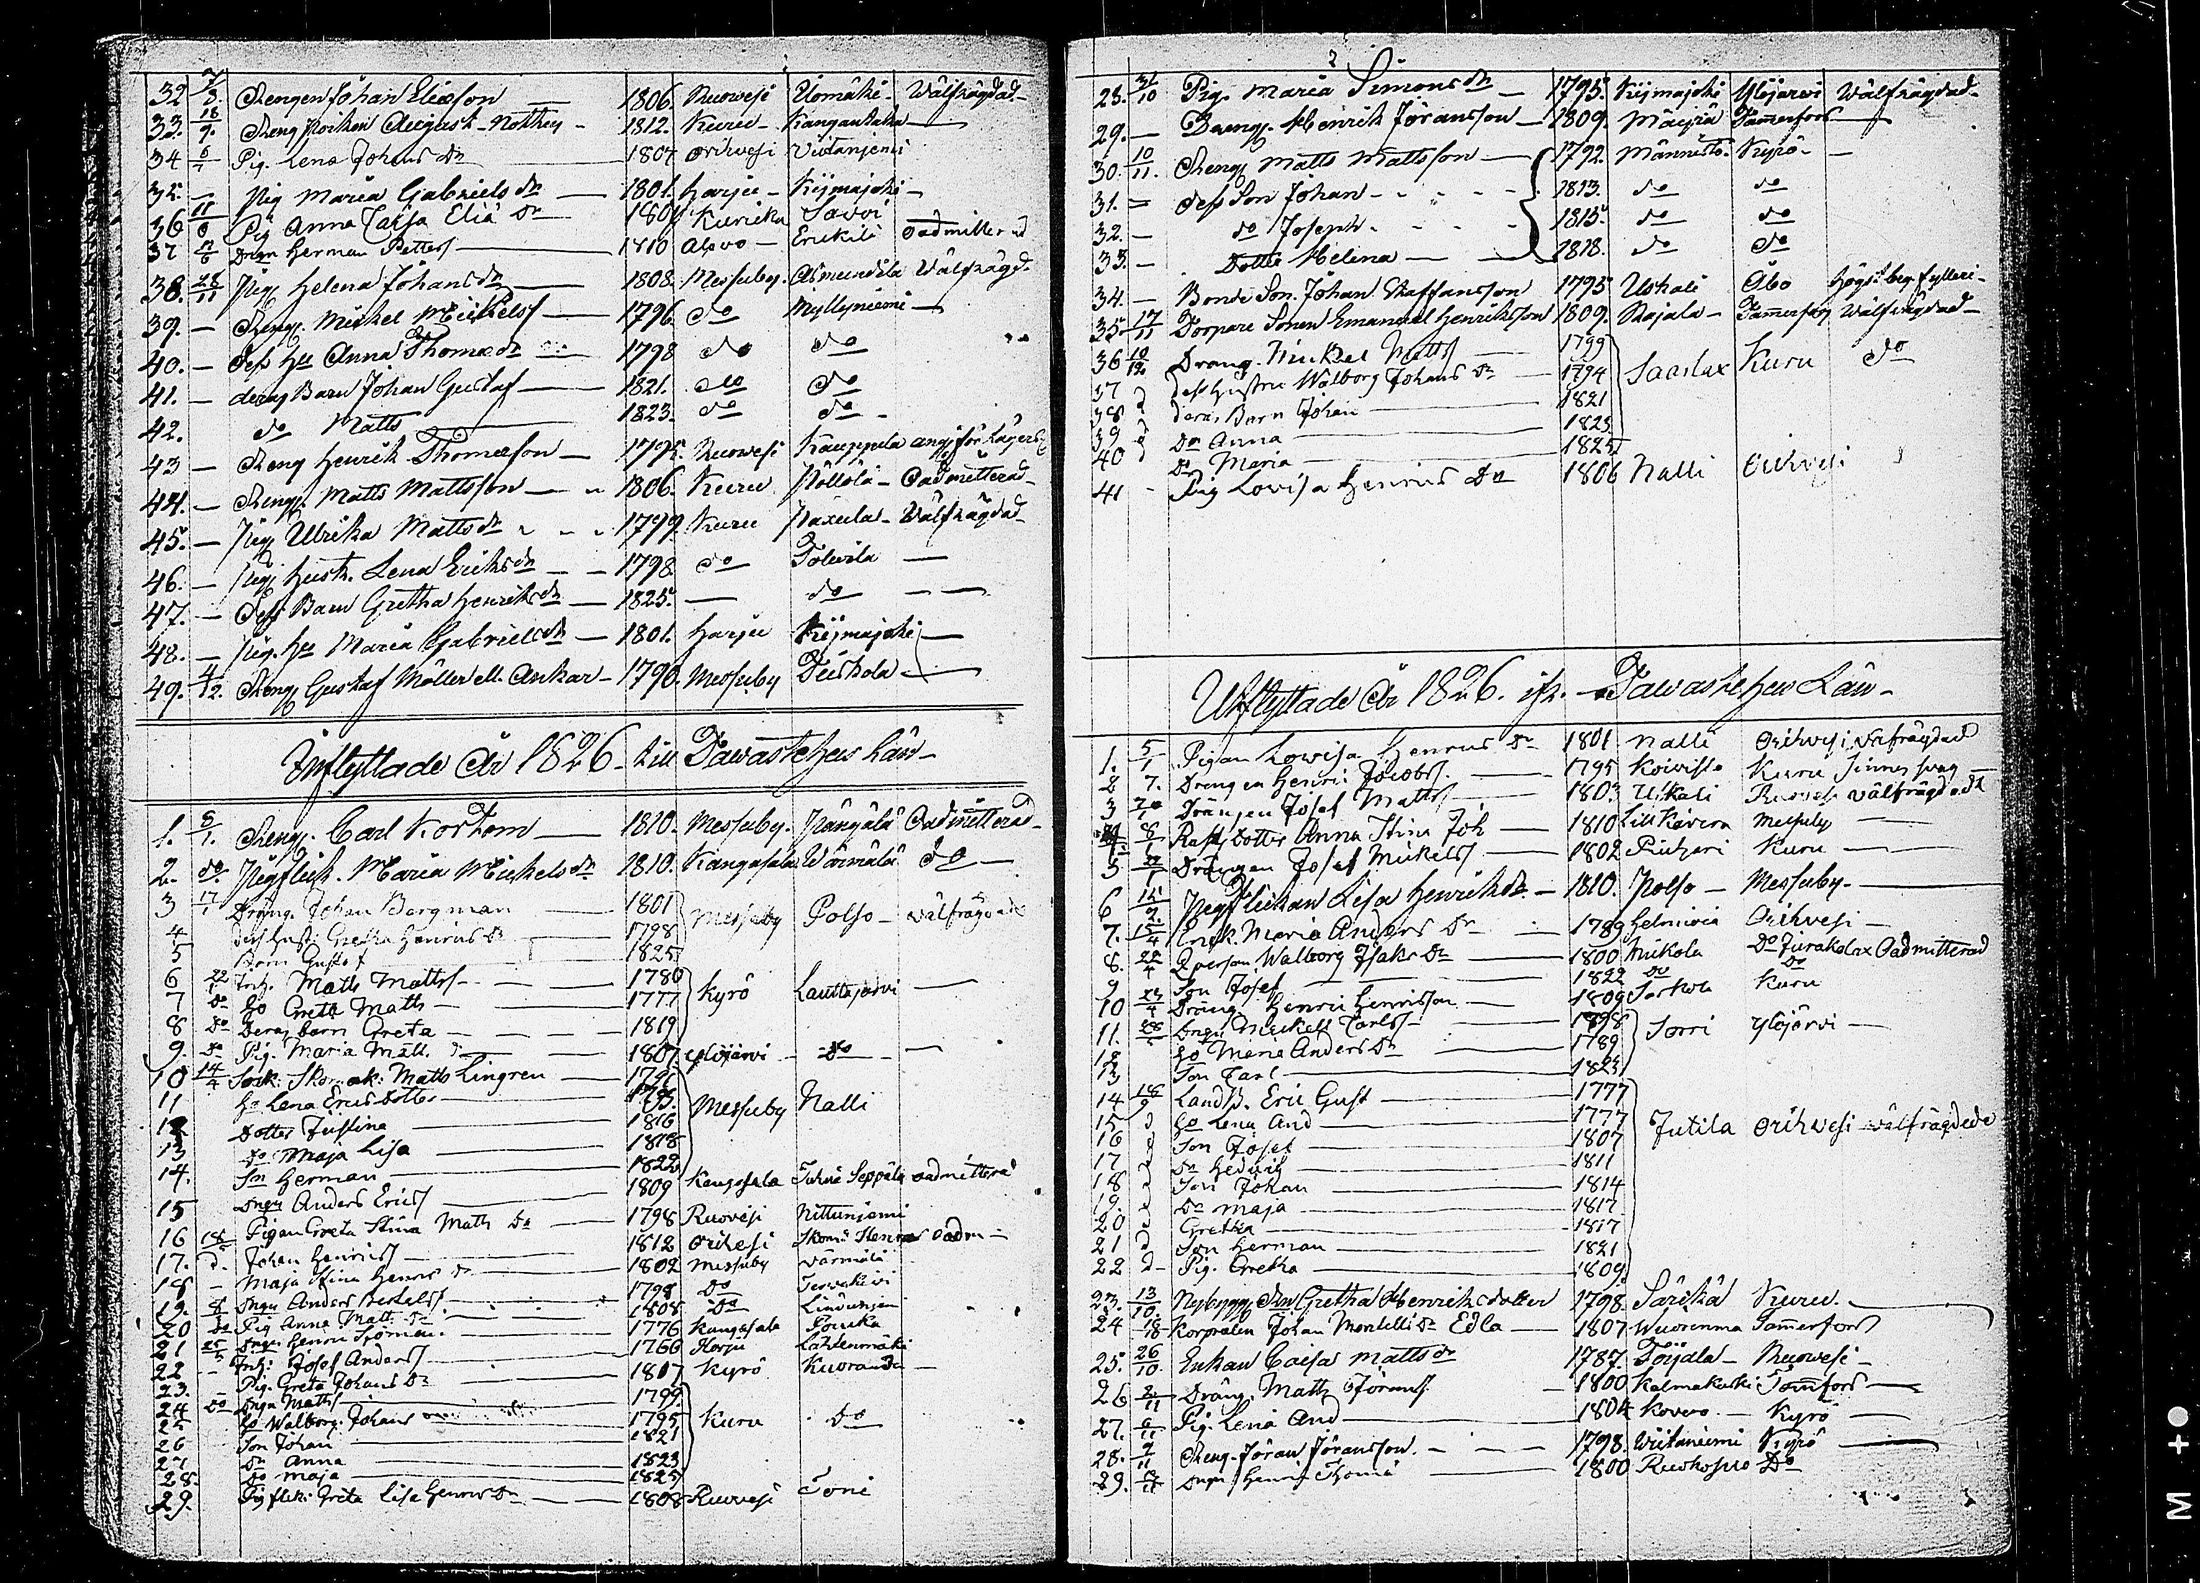 32 7/8. Drengen Johan Eliæson — 1806. Ruowesi Uomäki. Wälfrägdad.
33. 18/9. Dreng Poiken August Notthen 1812. Kuru Kangankulm —
34 Pig. Lena Johans Dr 1804 Orihvesi
35. — Pig Maria Gabriels dr — 1801. Harju — Kijmajoki —
36 Pig Anna Caisa Eliä Dr Kuricka Savoi
37 Dregn Herman Petters — 1810 Alavo — Erickilä Oadmitterad
38. 28/11 Pig. Helena Johans dr 1808. Messuby. Wälfrägd.
39. — Dreng. Mickel Mickelss — 1796. do Myllyniemi —
40. — Dess Hu Anna Thomæ dr 1798 do do
41. — deras Barn Johan Gustaf — 1821. do do
42. do Matts 1823. do do
43 — Dreng Henrik Thomæson — 1795. Ruowesi Kauppila
44. — Dreng. Matts Mattsson — 1806. Kuru Pöllölä — Oadmitterad
45. — Pig. Ulrika Matts dr 1799. Kuru Wälfrägdad
46. — Pig. Hust. Lena Eriks dr — 1798. do —
47. — Dess Barn Gretha Henriks dr — 1825. — do —
48. — Pig. Hu Maria Gabriels dr — 1801. Harju Kijmajoki —
49. 4/12. Dreng Gustaf Möller ell. Ankar — 1790. Messuby Deiskola —
Inflyttade År 1826 till Tawastehus Län
1. 5/1. Dreng. Carl Korthom — 1810. Messuby. Oadmitterad
2. do. Pigflick. Maria Mickels dr 1810. Kangasala Wärmälä do —
3 17/1 Dräng. Johan Bergman — 1801 Messuby Polso — Wälfrägdade
4 Dess Hust: Gretha Henrics dr 1798
5 Barn Gustaf 1825
6 Matts Mattss — 1780 Kyrö Lauttajärvi —
7 do Ho Greta Matts 1777
8 do Deras barn Greta 1819
9. do Pig. Maria Matt. 1807. Ylöjärvi — do —
10 14/4 Sock: Skomak: Matts Lingren
11 Ho Lena Ericsdotter Messuby Nalli
12 Dotter Justina 1816
13 do Maja Lisa 1818
14. Sn Herman 1822
15 Drgn Anders Ericss 1809 Kangasala Seppälä oadmitterad
16 Pigan Greta Stina Matts Dr 1798 Ruovesi Nittuniemi
17. d. Johan Henricss 1812 Orihvesi oadm —
18 — Maja Stina Henrics dr 1802 Messuby Värmälä
19. Drgn Anders 1798 do
20 do Pig Anna Matts Dr 1808 do
21 Drgn Henric Sjöman 1776 Kangasala
22 Josef Anderss 1766 Harju
23. — Pig. Greta Johans Dr 1807 Kyrö —
24 do Drgn Matts 1799 Kuru do
25 Ho Walborg Johans 1795
26 Son Johan 1821
27 Dr Anna 1823
28. do Maja 1825
29. Pigflick: Greta Lisa Henrics Dr 1808 Ruovesi Toni
2
28. 31/10 Pig. Maria Simons dr 1795. Kijmajoki Ylöjärvi Wälfrägdad
29. — Dreng. Henrik Jöransson — 1809. Mäyrä Tammerfors —
30. 10/11. Dreng Matts Mattsson — 1792. Männistö Kyrö —
31. — Dess Son Johan 1813. do do
32. — do Joseph 1815. do do
33. — Dotter Helena — 1818. do do
34. — Bonde Son. Johan Staffansson 1795 Uskali Åbo
35. 17/11 Torpare Sonen Emanuel Henriksson 1809. Rajala — Tammerfors Wälfrägdad
36 10/12 Dräng. Mickel Matts 1799 Saarlax Kuru do
37 d dess Hustru Walborg Johans Dr — 1794
38 d deras Barn Johan 1821
39 d Do Anna 1823
40 d Do Maria 1825
41 — Pig Lovisa Henrics Dr 1806 Nalli Orihvesi
Utflyttade År 1826. ifr. Tawastehus Län
1. 5/1 Pigan Lowisa Henrics Dr 1801 Nalli Orihvesi Välfrägdad
2 7. Drengen Henric Jacobss. 1795 Koivisto Kuru Sinnessvag
3 Drängen Josef Matts 1803 Uskali välfrägdad
4 Anna Stina Joh — 1810 Messuby
5 Drängen Josef Mickelss 1802 Kuru
6 Pigflickan Lisa Henriks dr — 1810. Polso — Messuby. —
7. 15/4 Enck. Maria Anders Dr 1789 Helmivia Orihvesi —
8. 22/4 Qpersn Walborg Isaks Dr 1800 Mickola Do Jurakolax Oadmitterad
9 Son Josef 1822 do do
10 Dräng. Henric Henricsson — 1809 Sorkola Kuru
11. Drgn Mickell Carlss — 1798 Sorri Ylöjärvi —
12 Ho Maria Anders Dr 1789
13 Son Carl 1823
14 18/9 Landb. Eric Gust 1777 Jutila Orihvesi wälfrägdede
15 d Ho Lena And 1777
16 d Son Josef 1807
17 d Dr Hedvig 1811
18 d Son Johan 1814
19. d Dr Maja 1817
20 d Gretha 1817
21 d Son Herman 1821
22 d Pig. Gretha 1809
23. 13/10. Nybygg. Gretha Henriksdotter 1798. Särikä Kuru.
24 18/10 Korpralen Johan Montelli Dr Edla — 1807. Tammerfors
25. 26/10. Enkan Caisa Matts dr 1787. Töijala — Ruowesi —
26 Dräng. Matts Jöranss. — 1800 Tammfors —
27. Pig. Lena And 1804 Kovero — Kyrö —
28. 9/11 Dreng. Jöran Jöransson. — 1798. Wiitaniemi Kyrö —
29. Drgn Henric Thomæ 1800 Ruokojus Do